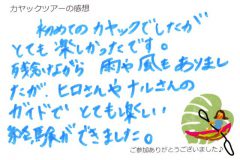 カヤックツアーの感想
初めてのカヤックでしたが
とても楽しかったです。
残念ながら 雨や風もありまし
たが、ヒロさんやナルさんの
ガイドで とても楽しい
経験ができました。
ご参加ありがとうございました♪